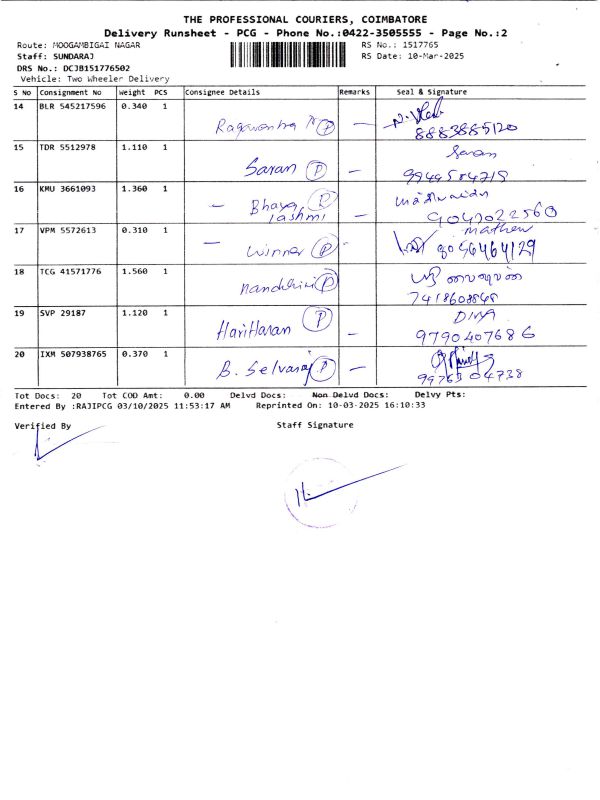 THE PROFESSIONAL COURIERS, COIMBATORE
Delivery Runsheet - PCG - Phone No.:0422-3505555 - Page No.:2
Route: MOOGAMBIGAI NAGAR RS No.: 1517765
Staff: SUNDARAJ RS Date: 10-Mar-2025
DRS No.: DCJB151776502
Vehicle: Two Wheeler Delivery
S No Consignment No Weight PCS Consignee Details Remarks Seal & Signature
14 BLR 545217596 0.340 1
P
8883885120
15 TDR 5512978 1.110 1 Saran
Saran P — 9944584719
16 KMU 3661093 1.360 1
— Bhaya P
lashmi — 9047022560
17 VPM 5572613 0.310 1 Mathew
— Winner P - 8056464129
18 TCG 41571776 1.560 1
P
7418608848
19 SVP 29187 1.120 1 DIVYA
HariHaran P — 9790407686
20 IXM 507938765 0.370 1
B. Selvaraj P — 9976304738
Tot Docs: 20 Tot COD Amt: 0.00 Delvd Docs: Non Delvd Docs: Delvy Pts:
Entered By :RAJIPCG 03/10/2025 11:53:17 AM Reprinted On: 10-03-2025 16:10:33
Verified By Staff Signature